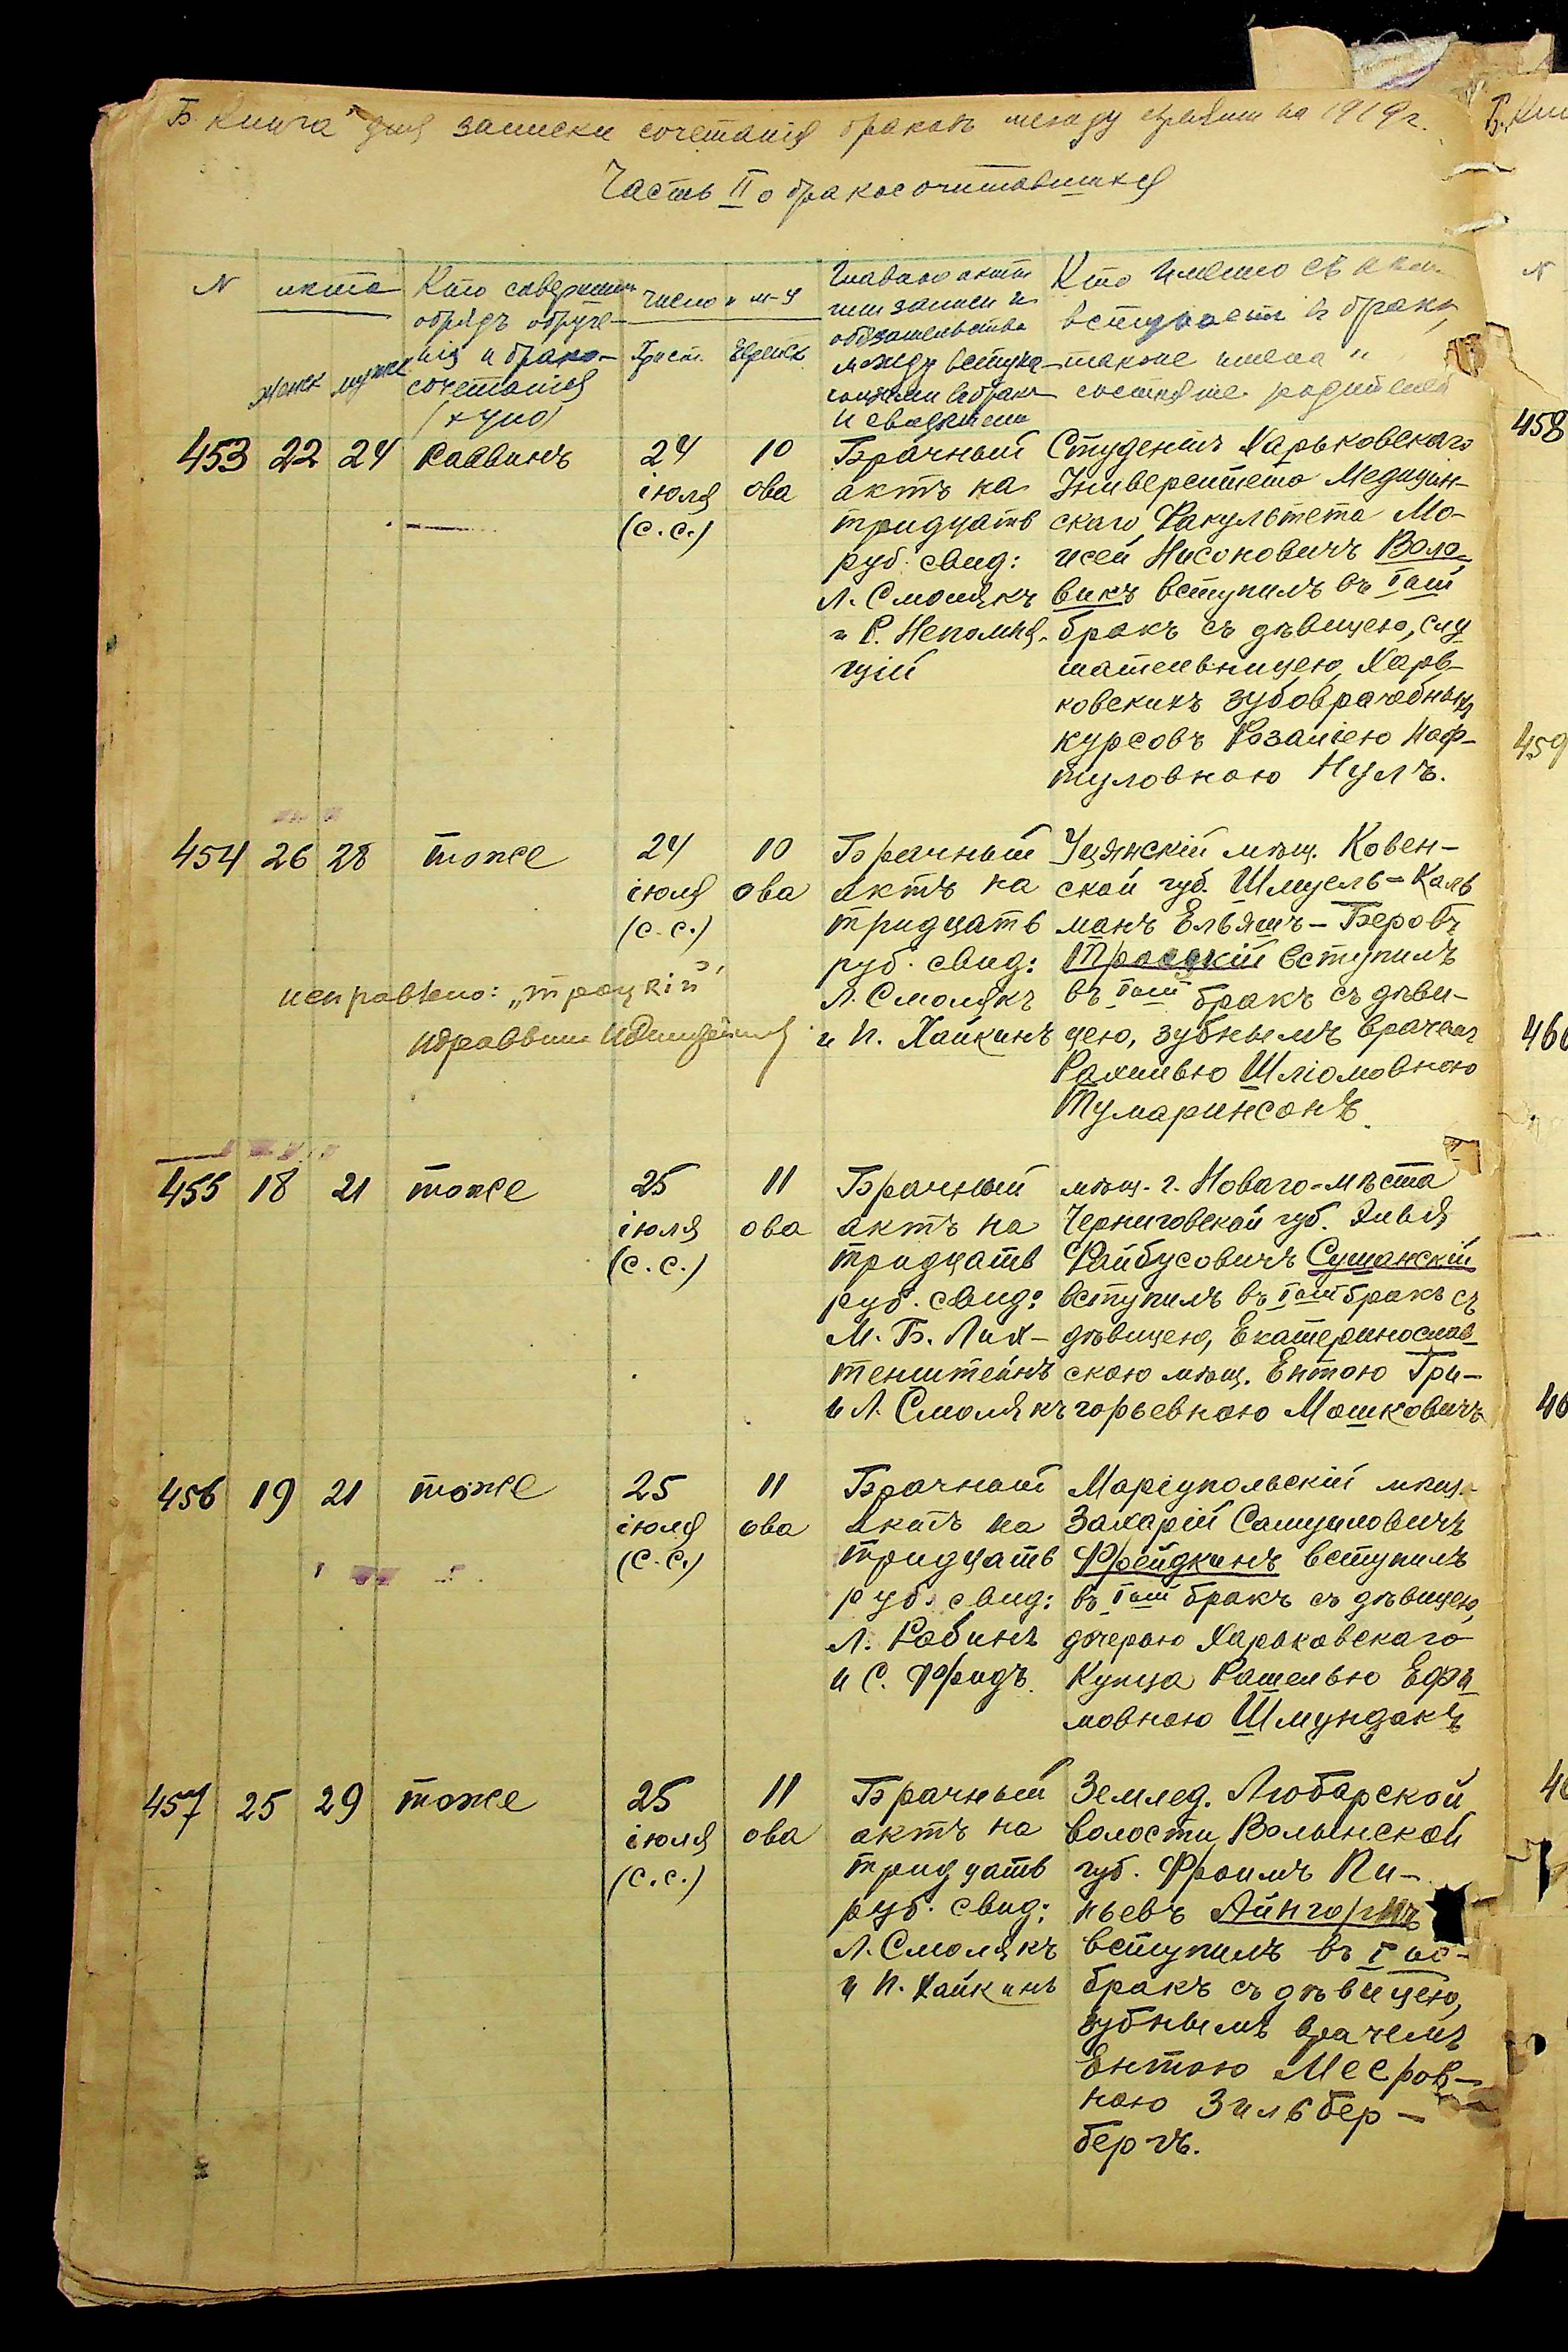 Б. Книга для записки сочетанія браковъ между евреями на 1919 г.
Часть II о бракосочитавшихся
N
лѣта
женск мужск
Кто совершилъ
обрядъ обруче-
нія и брако-
сочетанія
(хупо)
число и м-ц
Христ. Еврейск
Главные акты
или записи и
обязательства
между вступа-
ющими въ бракъ
и свидѣтели
Кто именно съ кѣмъ
вступаетъ въ бракъ,
также имена и
состояніе родителей
453
22
24
Раввинъ
24
іюля
(с.с.)
10
ова
Брачный
актъ на
тридцать
руб. свид:
Л. Смолякъ
и Р. Непомня-
щій
Студентъ Харьковскаго
Университета Медицин-
скаго Факультета Мо-
исей Нисоновичъ Воло-
викъ вступилъ въ Iый
бракъ съ дѣвицею, слу
шательницею Харь-
ковскихъ зубоврачебныхъ
курсовъ Розаліею Наф-
туловною Нулъ.
454
26
28
тоже
24
іюля
(с.с.)
10
ова
Брачный
актъ на
тридцать
руб. свид:
Л. Смолякъ
и П. Хайкинъ
Уцянскій мѣщ. Ковен-
ской губ. Шмуель-Каль
манъ Ельяшъ-Беровъ
Троцкій вступилъ
въ Iый бракъ съ дѣви-
цею, зубнымъ врачемъ
Рахилью Шліомовною
Тумаринсонъ.
исправлено: „троцкій“
455
18
21
тоже
25
іюля
(с.с.)
11
ова
Брачный
актъ на
тридцать
руб. свид:
М. Б. Лих-
тенштейнъ
и Л. Смолякъ
мѣщ. г. Новаго-мѣста
Черниговской губ. Элья
Файбусовичъ Сушанскій
вступилъ въ Iый бракъ съ
дѣвицею, Екатеринослав
скою мѣщ. Ентою Гри-
горьевною Мошковичъ
456
19
21
тоже
25
іюля
(с.с.)
11
ова
Брачный
актъ на
тридцать
руб. свид:
Л. Рабинъ
и С. Фридъ.
Маріупольскій мѣщ.
Захарій Самуиловичъ
Фрейдкинъ вступилъ
въ Iый бракъ съ дѣвицею,
дочерью Харьковскаго
Купца Рашелью Ефи
мовною Шмундакъ
457
25
29
тоже
25
іюля
(с.с.)
11
ова
Брачный
актъ на
тридцать
руб. свид:
Л. Смолякъ
и П. Хайкинъ
Землед. Любарской
волости Волынской
губ. Фроимъ Пи-
ньевъ Айнгорнъ
вступилъ въ I ый
бракъ съ дѣвицею,
зубнымъ врачемъ
Ентою Меєров-
ною Зильбер-
бергъ.
N
458
459